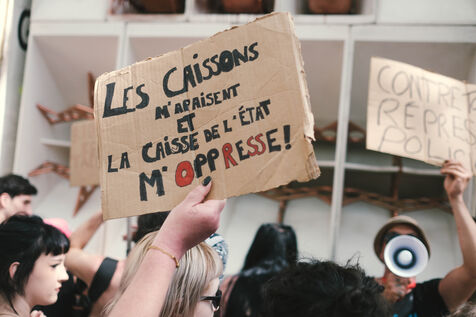 LES CAISSONS
M'APAISENT
ET
LA CAISSE DE L'ÉTAT
M'OPPRESSE!
CONTRE L
RÉPRES
POLIC